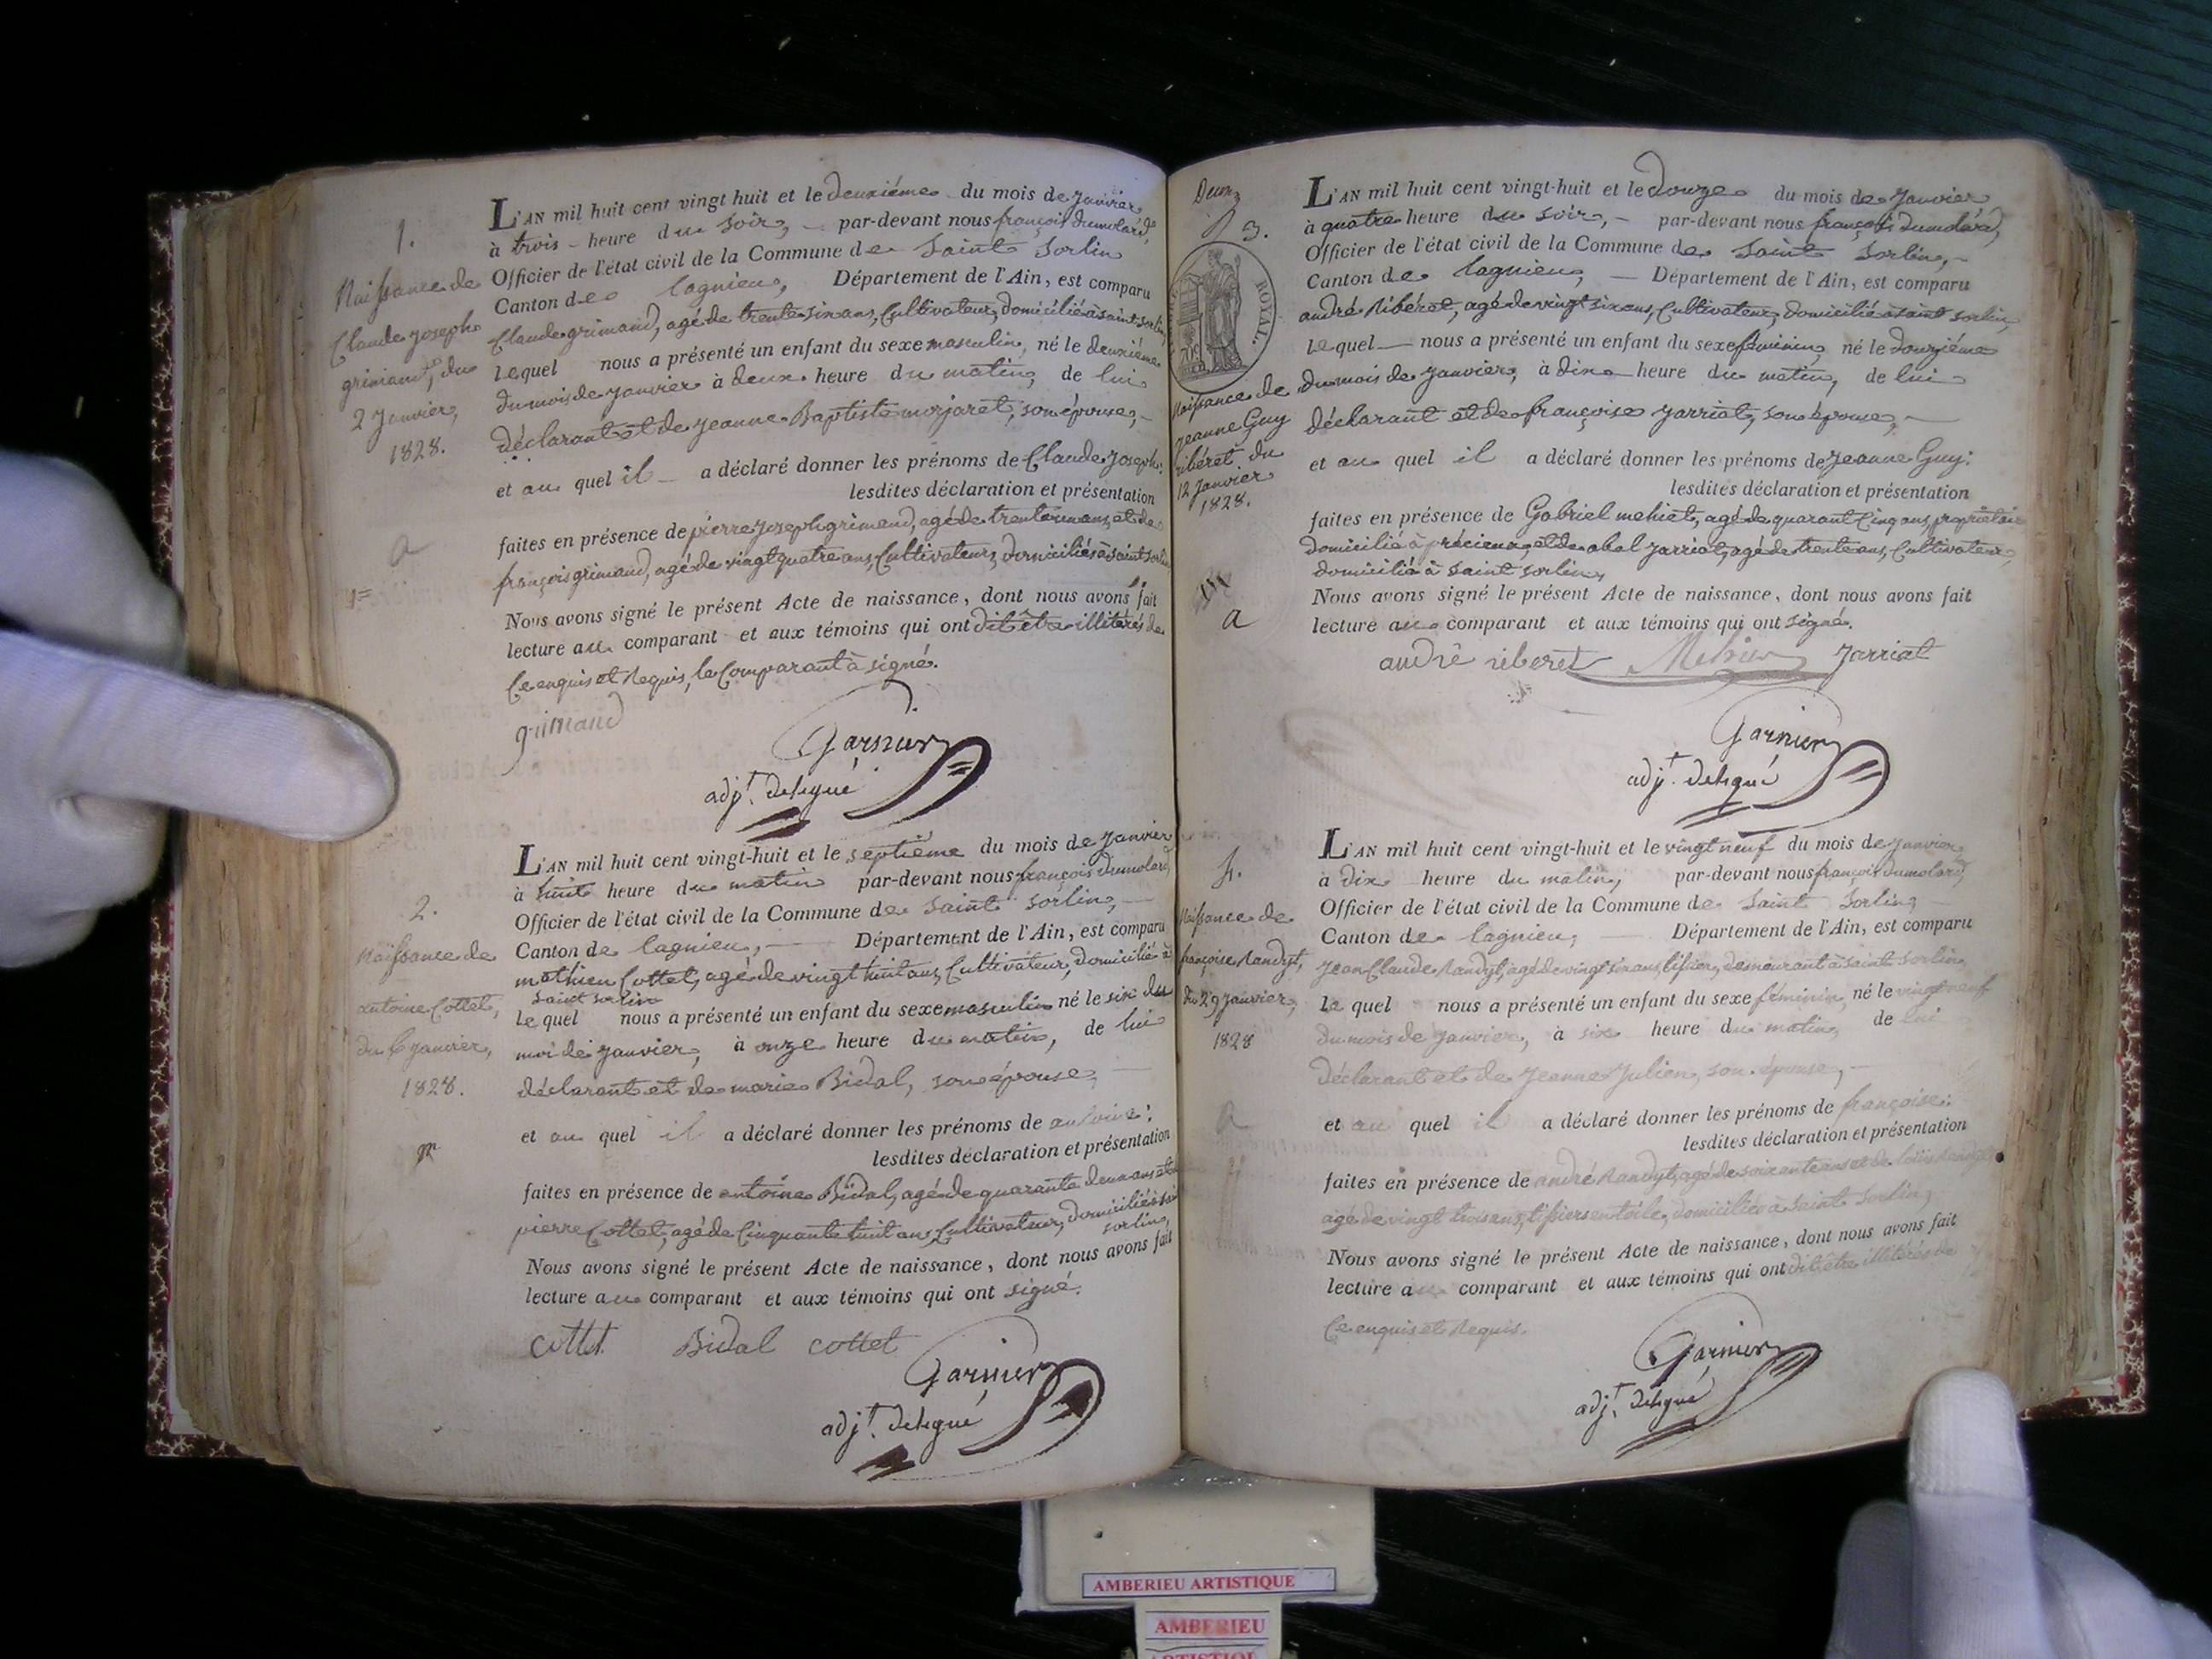 1.
Naissance de
Claude joseph
grimand, du
2 Janvier,
1828.
a
L'AN mil huit cent vingt huit et le deuxiéme du mois de Janvier
à trois - heure du soir, - par-devant nous françois dumolard,
Officier de l'état civil de la Commune de Saint Sorlin
Canton de lagnieu, Département de l'Ain, est comparu
Claude grimand, agé de trente six ans, Cultivateur, domicilié à saint sorlin,
Lequel nous a présenté un enfant du sexe masculin, né le deuxiéme
du mois de Janvier à deux heure du matin, de lui
déclarant et de jeanne Baptiste morjaret, son épouse, -
et au quel il - a déclaré donner les prénoms de Claude joseph:
lesdites déclaration et présentation
faites en présence de pierre joseph grimand, agé de ans, et de
françois grimand, agé de vingt quatre ans, Cultivateurs, domiciliés à saint sorlin
Nous avons signé le présent Acte de naissance, dont nous avons fait
lecture au comparant et aux témoins qui ont dit être illitérés de
Ce enquis et Requis, le Comparant à signé.
grimand
Garnier
adjt. delegué
2.
Naissance de
antoine Cottet,
du 6 janvier,
1828.
L'AN mil huit cent vingt-huit et le septième du mois de Janvier
à huit heure du matin par-devant nous françois dumolard,
Officier de l'état civil de la Commune de Saint Sorlin, -
Canton de lagnieu, - Département de l'Ain, est comparu
mathieu Cottet, agé de vingt huit ans, Cultivateur, domicilié à
saint sorlin
Le quel nous a présenté un enfant du sexe masculin né le six du
moi de janvier, à onze heure du matin, de lui
déclarant et de marie Bidal, son épouse, -
et au quel il a déclaré donner les prénoms de antoine:
lesdites déclaration et présentation
faites en présence de antoine Bidal, agé de quarante deux ans et de
pierre Cottet, agé de Cinquante huit ans, Cultivateur, domiciliés à saint
sorlin,
Nous avons signé le présent Acte de naissance, dont nous avons fait
lecture au comparant et aux témoins qui ont signé.
Cottet Bidal cottet
Garnier
adjt. delegué
3.
ROYAL.
Naissance de
jeanne Guy
ribéret du
12 Janvier
1828.
a
L'AN mil huit cent vingt-huit et le douze du mois de Janvier
à quatre heure du soir, - par-devant nous françois dumolard,
Officier de l'état civil de la Commune de Saint Sorlin, -
Canton de lagnieu, - Département de l'Ain, est comparu
andré Ribéret, agé de vingt six ans, Cultivateur, domicilié à saint sorlin
Le quel - nous a présenté un enfant du sexe féminin, né le douziéme
du mois de janvier, à dix heure du matin, de lui
déclarant et de françoise jarriat, son épouse, -
et au quel il a déclaré donner les prénoms de jeanne Guy:
lesdites déclaration et présentation
faites en présence de Gabriel mehiet, agé de quarant Cinq ans, propriétaire
domicilié à et de abel jarriat, agé de trente ans, Cultivateur,
domicilié à saint sorlin,
Nous avons signé le présent Acte de naissance, dont nous avons fait
lecture au comparant et aux témoins qui ont signé.
andré riberet jarriat
Garnier
adjt. delegué
4.
Naissance de
françoise Randyt,
du 29 janvier,
1828
a
L'AN mil huit cent vingt-huit et le vingt neuf du mois de janvier
à dix heure du matin, par-devant nous françois dumolard,
Officier de l'état civil de la Commune de Saint Sorlin,
Canton de lagnieu, Département de l'Ain, est comparu
Jean Claude Randyt, agé de vingt six ans, tissier, demeurant à saint sorlin,
Le quel nous a présenté un enfant du sexe féminin, né le vingt neuf
du mois de janvier, à six heure du matin, de lui
déclarant et de Jeanne Julien, son épouse, -
et au quel il a déclaré donner les prénoms de françoise:
lesdites déclaration et présentation
faites en présence de andré Randyt, agé de soixante ans et de loüis Randyt
agé de vingt trois ans, tissiers en toile, domiciliés à saint sorlin,
Nous avons signé le présent Acte de naissance, dont nous avons fait
lecture au comparant et aux témoins qui ont dit être illitérés de
Ce enquis et Requis.
Garnier
adjt. delegué
AMBERIEU ARTISTIQUE
AMBERIEU
ARTISTIQUE